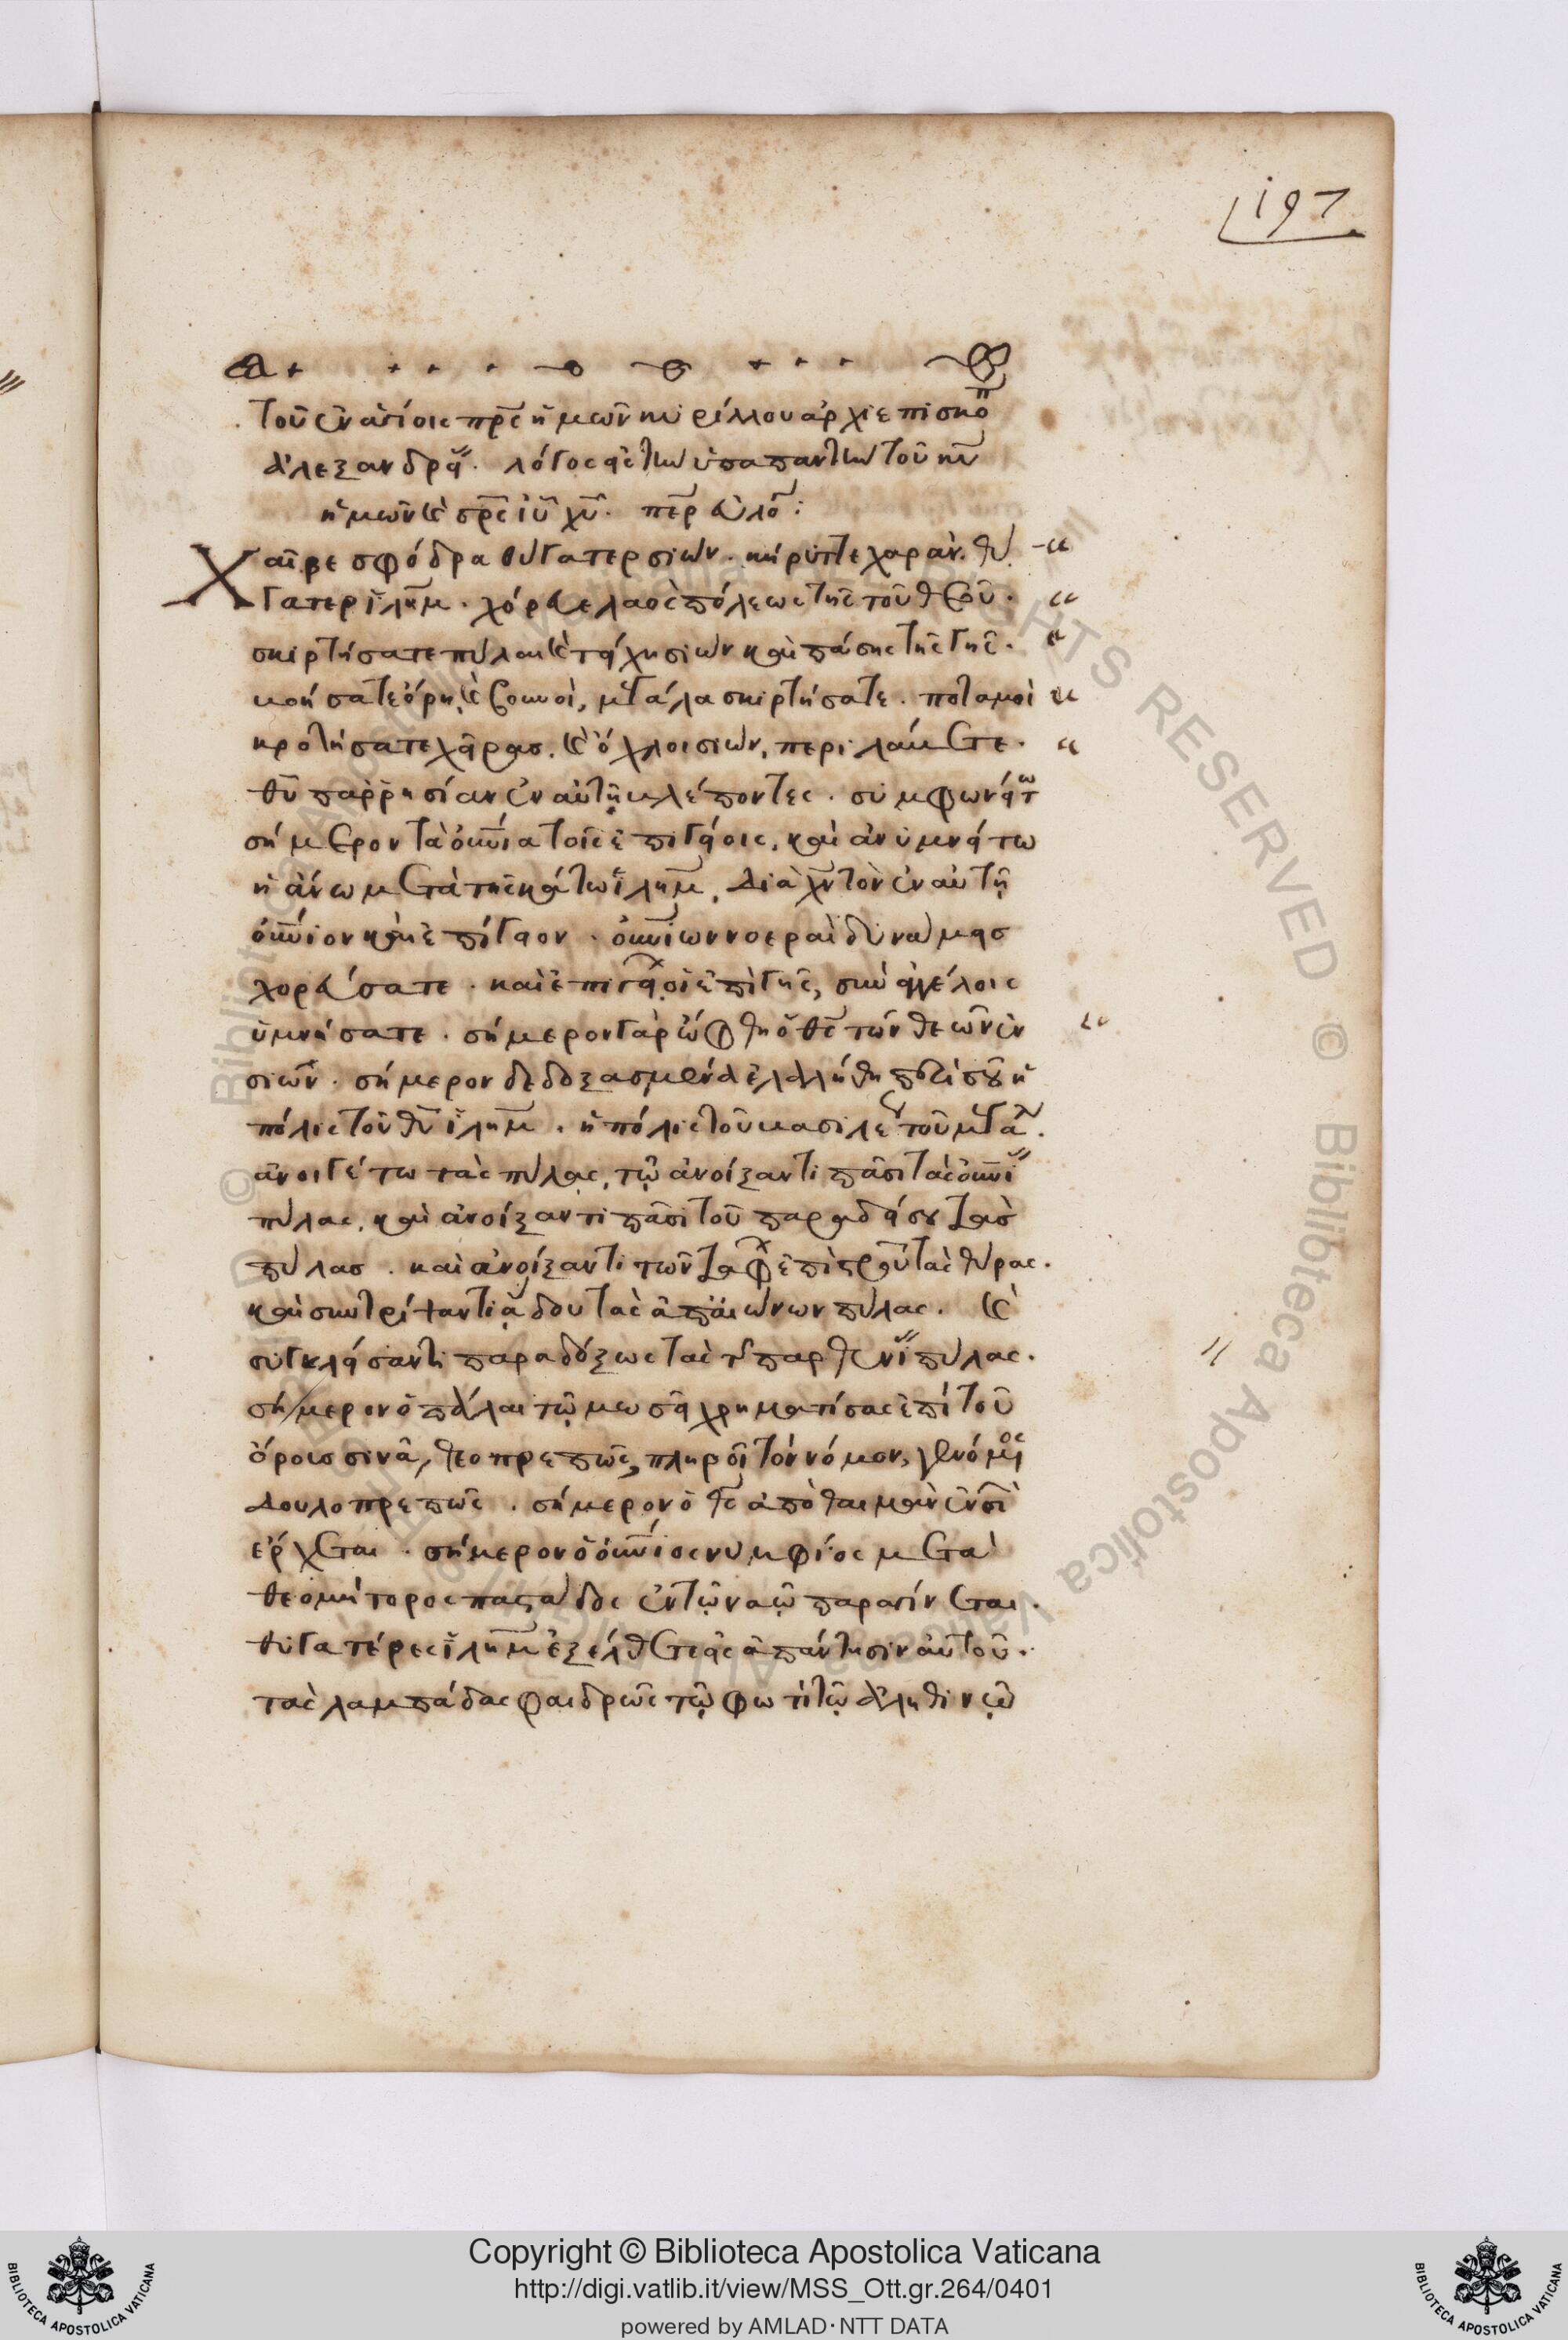 197
τοῦ ἐν ἁγίοις πρς ἡμῶν κυρίλλου ἀρχιεπισκό
ἀλεξανδρεί. λόγος εἰς τὴν ὑπαπαντὴν τοῦ κυ
ἡμῶν κ σρς ἰυ χυ. περ εὐλο:
Χαῖρε σφόδρα θύγατερ σιών. κήρυττε χαρὰν. θύ
γατερ ἰλημ. χόρευε λαὸς πόλεως τῆς τοῦ θεοῦ.
σκιρτήσατε πύλαι κ τείχη σιὼν καὶ πάσης τῆς γῆς.
βοήσατε ὄρη, κ βουνοὶ, μεγάλα σκιρτήσατε. ποταμοὶ
κροτήσατε χεῖρας. κ ὄχλοι σιὼν, περιλάβετε.
θυ παρρησίαν ἐν αὐτῇ βλέποντες. συμφωνείτω
σήμερον τὰ οὐνια τοῖς ἐπιγείοις, καὶ ἀνυμνείτω
ἡ ἄνω μετὰ τῆς κάτω ἰλημ, διὰ χν τὸν ἐν αὐτῇ
οὐνιον καὶ ἐπίγειον. οὐνιων νοεραὶ δυνάμεις
χορεύσατε. καὶ ἐπίγειοι οἱ ἐπὶ γῆς, σὺν ἀγγέλοις
ὑμνήσατε. σήμερον γὰρ ὤφθη ὁ θς τῶν θεῶν ἐν
σιῶν. σήμερον δεδοξασμένα ἐλαλήθη περὶ σοῦ ἡ
πόλις τοῦ θυ ἰλημ. ἡ πόλις τοῦ βασιλέως τοῦ μεγάλ.
ἀνοιγέτω τὰς πύλας, τῷ ἀνοίξαντι πᾶσι τὰς οὐνι
πύλας, καὶ ἀνοίξαντι πᾶσι τοῦ παραδείσου τὰς
πύλας. καὶ ἀνοίξαντι τῶν τάφ ἐπὶ στρου τὰς θύρας.
καὶ συντρίψαντι ᾅδου τὰς ἀπ αἰώνων πύλας. κ
συγκλείσαντι παραδόξως τὰς τ παρθενι πύλας.
σήμερον ὁ πάλαι τῷ μωσεῖ χρηματίσας ἐπὶ τοῦ
ὄρους σινᾶ, θεοπρεπῶς, πληροῖ τὸν νόμον, γενόμος
δουλοπρεπῶς. σήμερον ὁ θς ἀπὸ θαιμὰν ἐν σι
ἔρχεται. σήμερον ὁ οὐνιος νυμφίος μετὰ
θεομήτορος παστάδος ἐν τῷ ναῷ παραγίνεται.
θυγατέρες ἰλημ ἐξέλθετε εἰς ἀπάντησιν αὐτοῦ.
τὰς λαμπάδας φαιδρῶς τῷ φωτὶ τῷ ἀληθινῷ
Copyright © Biblioteca Apostolica Vaticana
http://digi.vatlib.it/view/MSS_Ott.gr.264/0401
powered by AMLAD·NTT DATA